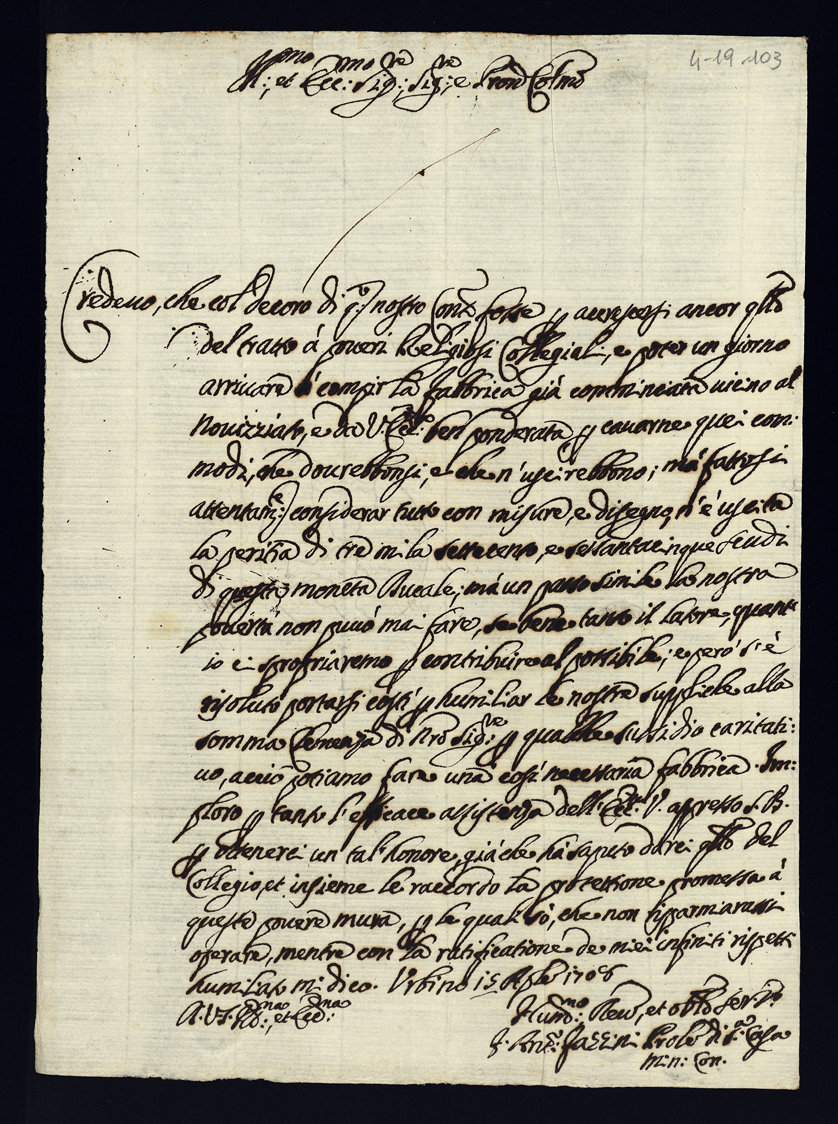 4-19-103
Ill:mo et Ecc:mo Sig:re Sig:re e Pron Colmo
Credeuo, che col decoro di q.o nostro Con.to fosse p accrescersi ancor qllo
del tratto à poueri Religiosi Collegiali, e poter un giorno
arriuare à compir la fabbrica già comminciata uicino al
Nouizziato, e da V. Ecc.a ben ponderata p cauarne quei com:
modi, che dourebbonsi, e che n'uscirebbono; mà fattosi
attentam.e considerar tutto con misure, e disegno, n'è uscita
la peritia di tre mila settecento, e sessantacinque scudi
di questa moneta Ducale; mà un passo simile la nostra
pouertà non può mai fare, se bene tanto il latore, quanto
io ci spropriaremo p contribuire al possibile; e però s'è
risoluto portarsi costì p humiliar le nostre suppliche alla
somma Clemenza di Nro Sig:re p qualche sussidio caritati:
uo, acciò potiamo fare una così necessaria fabbrica. Im:
ploro p tanto l'efficace assistenza dell'Ecc.a V. appresso S. B.
p ottenerci un tal honore, già che hà saputo darci qllo del
Collegio, et insieme le raccordo la protettione promessa à
queste pouere mura, p le quali sò, che non risparmiarassi
operare, mentre con la ratificatione de miei infiniti rispetti
humiliss.o mi dico. Urbino 15 Aple 1706
A. V. Ill:ma et Ecc:ma
Hum:mo Deu.o, et obl.o Ser.re
F. Ant.o Fazzini Prolo di q.a Casa
Min: Con.